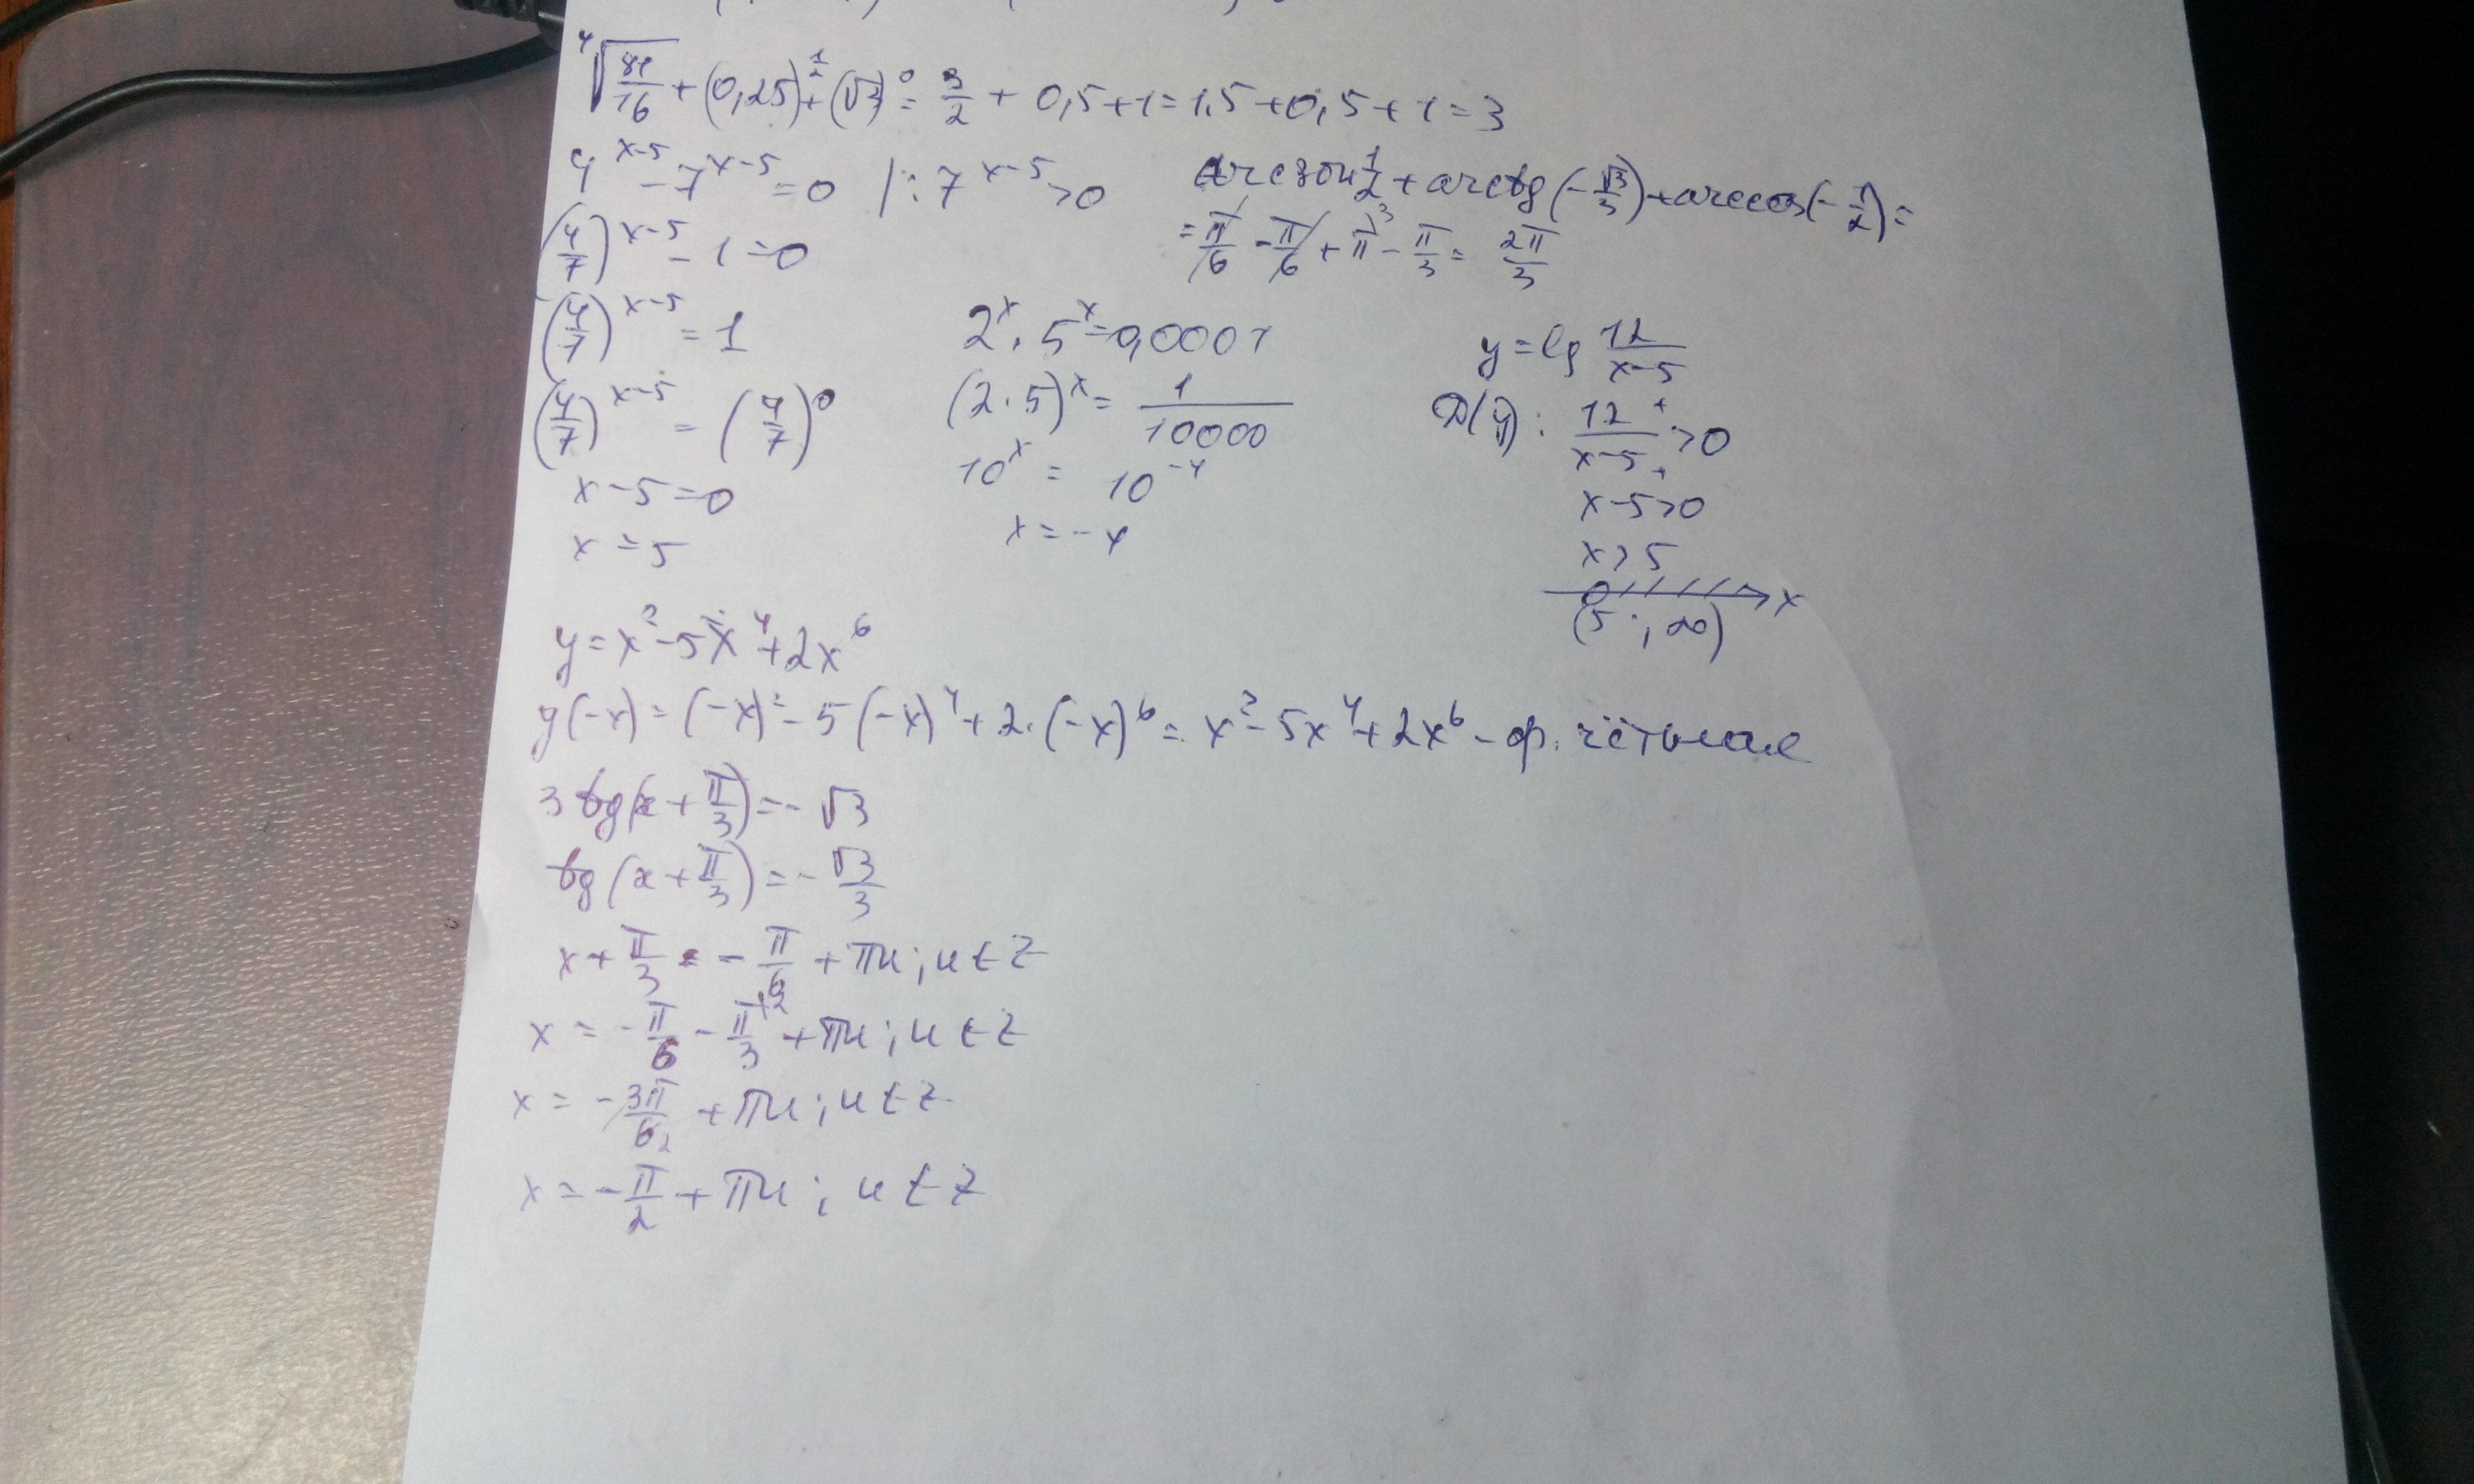 ⁴√(81/16) + (0,25)^(1/2) + (√3)^0 = 3/2 + 0,5 + 1 = 1,5 + 0,5 + 1 = 3
4^(x-5) - 7^(x-5) = 0 | : 7^(x-5) > 0
(4/7)^(x-5) - 1 = 0
(4/7)^(x-5) = 1
(4/7)^(x-5) = (4/7)^0
x - 5 = 0
x = 5
arcsin 1/2 + arctg(-√3/3) + arccos(-1/2) =
= π/6 - π/6 + π - π/3 = 2π/3
2^x · 5^x = 0,0001
(2 · 5)^x = 1/10000
10^x = 10^-4
x = -4
y = lg 12/(x-5)
D(y): 12/(x-5) > 0
x - 5 > 0
x > 5
x
(5; ∞)
y = x² - 5x⁴ + 2x⁶
y(-x) = (-x)² - 5(-x)⁴ + 2·(-x)⁶ = x² - 5x⁴ + 2x⁶ - ф. чётная
3 tg(x + π/3) = -√3
tg(x + π/3) = -√3/3
x + π/3 = -π/6 + πn; n ∈ Z
x = -π/6 - π/3 + πn; n ∈ Z
x = -3π/6 + πn; n ∈ Z
x = -π/2 + πn; n ∈ Z